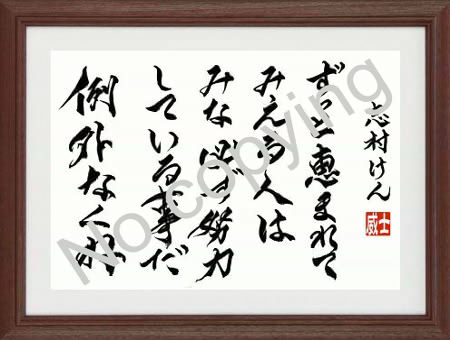 志村けん
ずっと恵まれて
みえる人は
みな必ず努力
している事だ
例外なくね
士威
No copying